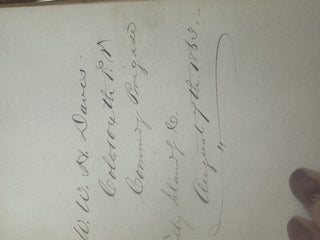 W. W. H. Davis.
Col 104th P. V
Commdg Brigade
Island S.C.
August 7th 1863..